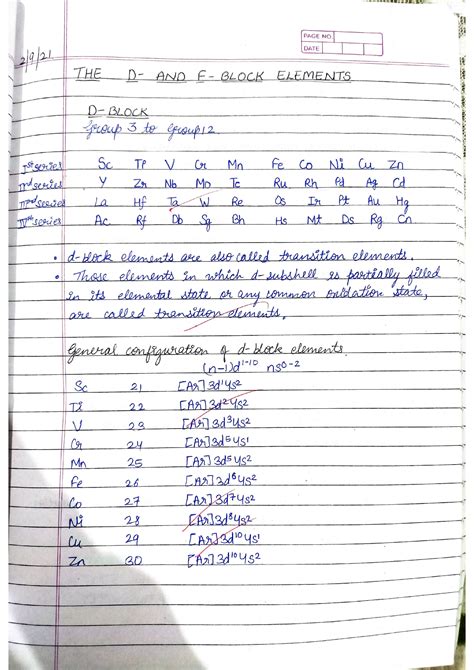 PAGE NO.
DATE
2/9/21
THE D- AND F-BLOCK ELEMENTS
D-BLOCK
Group 3 to Group 12.
Ist series Sc Ti V Cr Mn Fe Co Ni Cu Zn
IInd series Y Zr Nb Mo Tc Ru Rh Pd Ag Cd
IIIrd series La Hf Ta W Re Os Ir Pt Au Hg
IVth series Ac Rf Db Sg Bh Hs Mt Ds Rg Cn
• d-block elements are also called transition elements.
• Those elements in which d-subshell is partially filled
in its elemental state or any common oxidation state,
are called transition elements.
General configuration of d-block elements.
(n-1)d¹⁻¹⁰ ns⁰⁻²
Sc 21 [Ar]3d¹4s²
Ti 22 [Ar]3d²4s²
V 23 [Ar]3d³4s²
Cr 24 [Ar]3d⁵4s¹
Mn 25 [Ar]3d⁵4s²
Fe 26 [Ar]3d⁶4s²
Co 27 [Ar]3d⁷4s²
Ni 28 [Ar]3d⁸4s²
Cu 29 [Ar]3d¹⁰4s¹
Zn 30 [Ar]3d¹⁰4s²